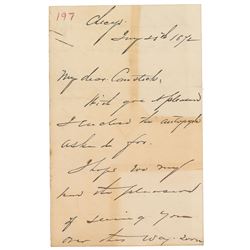 197
Chicago
July 25th 1872
My dear Comstock,
With great pleasure
I enclose the autograph
asked for.
I hope we may
have the pleasure
of seeing you
over this way soon